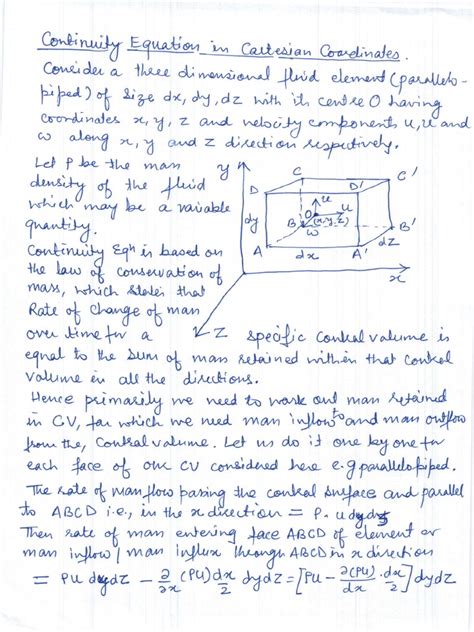 Continuity Equation in Cartesian Coordinates.
Consider a three dimensional fluid element (parallelo-
piped) of size dx, dy, dz with its centre O having
coordinates x, y, z and velocity components u, v and
w along x, y and z direction respectively.
Let ρ be the mass
density of the fluid
which may be a variable
quantity.
Continuity Eqn is based on
the law of conservation of
mass, which states that
Rate of change of mass
over time for a specific control volume is
y
C
C'
D
D'
u
dy
O
u
B
(x,y,z)
B'
w
A
dx
A'
dz
x
Z
equal to the sum of mass retained within that control
volume in all the directions.
Hence primarily we need to work out mass retained
in CV, for which we need mass inflow to and mass outflow
from the, control volume. Let us do it one by one for
each face of our CV considered here e.g parallelopiped.
The rate of mass flow passing the control surface and parallel
to ABCD i.e., in the x direction = ρ. u dy dz
Then rate of mass entering face ABCD of element or
mass inflow / mass influx through ABCD in x direction
= ρu dy dz - ∂/∂x (ρu) dx/2 dy dz = [ρu - ∂(ρu)/dx . dx/2] dy dz